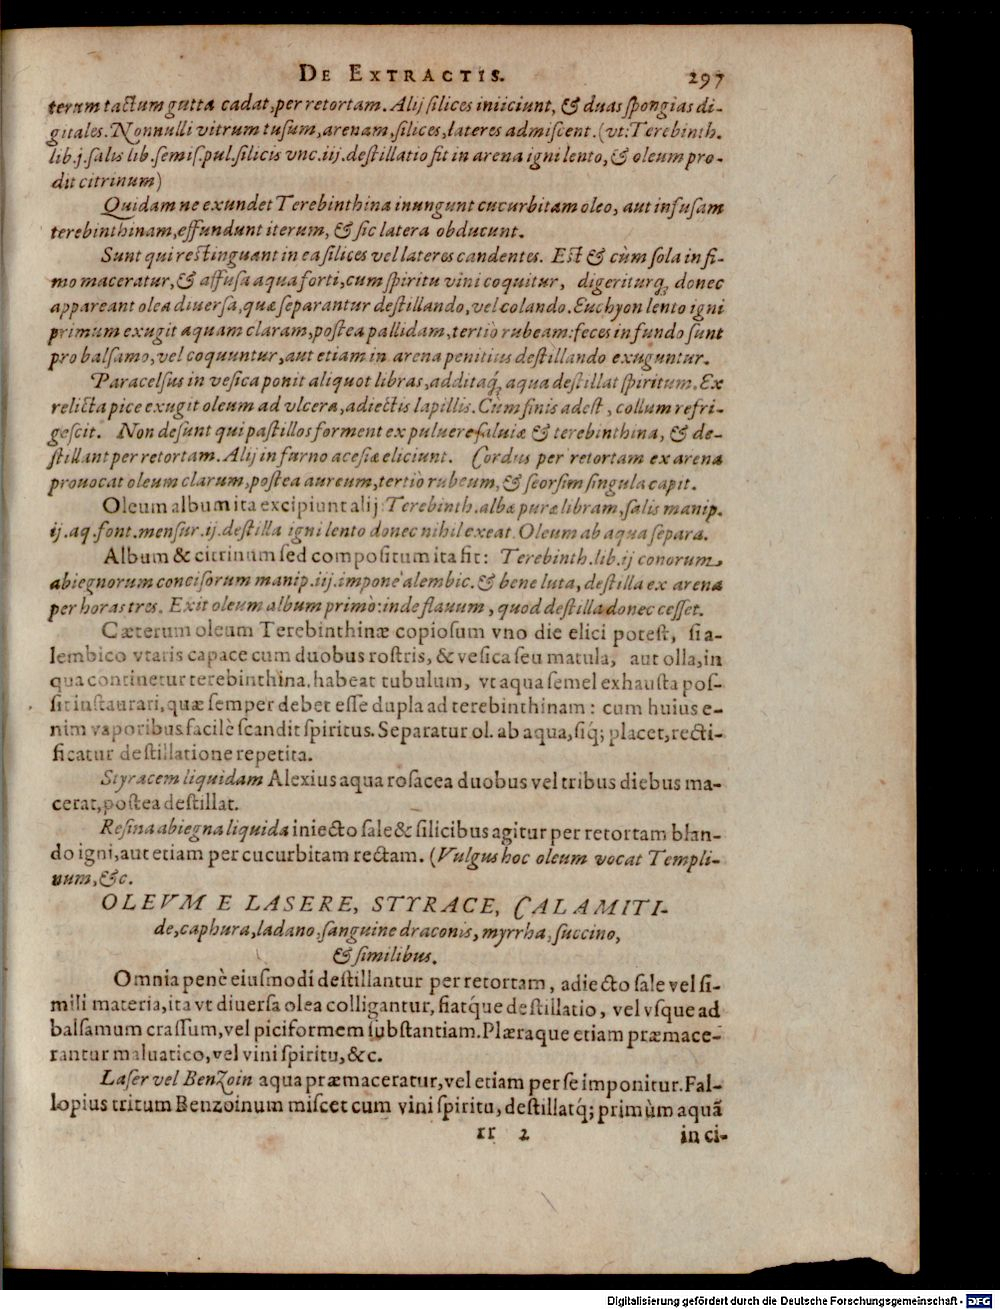 DE EXTRACTIS. 297
terum tactum gutta cadat, per retortam. Alij silices iniiciunt, & duas spongias di-
gitales. Nonnulli vitrum tusum, arenam, silices, lateres admiscent. (vt: Terebinth.
lib.j. salis lib. semis. pul. silicis vnc.iij. destillatio fit in arena igni lento, & oleum pro-
dit citrinum)
Quidam ne exundet Terebinthina inungunt cucurbitam oleo, aut infusam
terebinthinam, effundunt iterum, & sic latera obducunt.
Sunt qui restinguant in ea silices vel lateres candentes. Est & cùm sola in fi-
mo maceratur, & affusa aqua forti, cum spiritu vini coquitur, digeriturq́; donec
appareant olea diuersa, quæ separantur destillando, vel colando. Euchyon lento igni
primum exugit aquam claram, postea pallidam, tertiò rubeam: feces in fundo sunt
pro balsamo, vel coquuntur, aut etiam in arena penitius destillando exuguntur.
Paracelsus in vesica ponit aliquot libras, additaq́; aqua destillat spiritum. Ex
relicta pice exugit oleum ad vlcera, adiectis lapillis. Cùm finis adest, collum refri-
gescit. Non desunt qui pastillos forment ex puluere saluiæ & terebinthina, & de-
stillant per retortam. Alij in furno acesiæ eliciunt. Cordus per retortam ex arena
prouocat oleum clarum, postea aureum, tertiò rubeum, & seorsim singula capit.
Oleum album ita excipiunt alij: Terebinth. albæ puræ libram, salis manip.
ij. aq. font. mensur. ij. destilla igni lento donec nihil exeat. Oleum ab aqua separa.
Album & citrinum sed compositum ita fit: Terebinth. lib. ij conorum
abiegnorum conciforum manip. iij. impone alembic. & bene luta, destilla ex arena
per horas tres. Exit oleum album primò: inde flauum, quod destilla donec cesset.
Cæterum oleum Terebinthinæ copiosum vno die elici potest, si a-
lembico vtaris capace cum duobus rostris, & vesica seu matula, aut olla, in
qua continetur terebinthina, habeat tubulum, vt aqua semel exhausta pos-
sit instaurari, quæ semper debet esse dupla ad terebinthinam: cum huius e-
nim vaporibus facilè scandit spiritus. Separatur ol. ab aqua, siq́; placet, recti-
ficatur destillatione repetita.
Styracem liquidam Alexius aqua rosacea duobus vel tribus diebus ma-
cerat, postea destillat.
Resina abiegna liquida iniecto sale & silicibus agitur per retortam blan-
do igni, aut etiam per cucurbitam rectam. (Vulgus hoc oleum vocat Templi-
num, &c.
OLEVM E LASERE, STYRACE, CALAMITI-
de, caphura, ladano, sanguine draconis, myrrha, succino,
& similibus.
Omnia penè eiusmodi destillantur per retortam, adiecto sale vel si-
mili materia, ita vt diuersa olea colligantur, fiatq́ue destillatio, vel vsque ad
balsamum crassum, vel piciformem substantiam. Plæraque etiam præmace-
rantur maluatico, vel vini spiritu, &c.
Laser vel Benzoin aqua præmaceratur, vel etiam per se imponitur. Fal-
lopius tritum Benzoinum miscet cum vini spiritu, destillatq́; primùm aquã
rr 2 in ci-
Digitalisierung gefördert durch die Deutsche Forschungsgemeinschaft - DFG